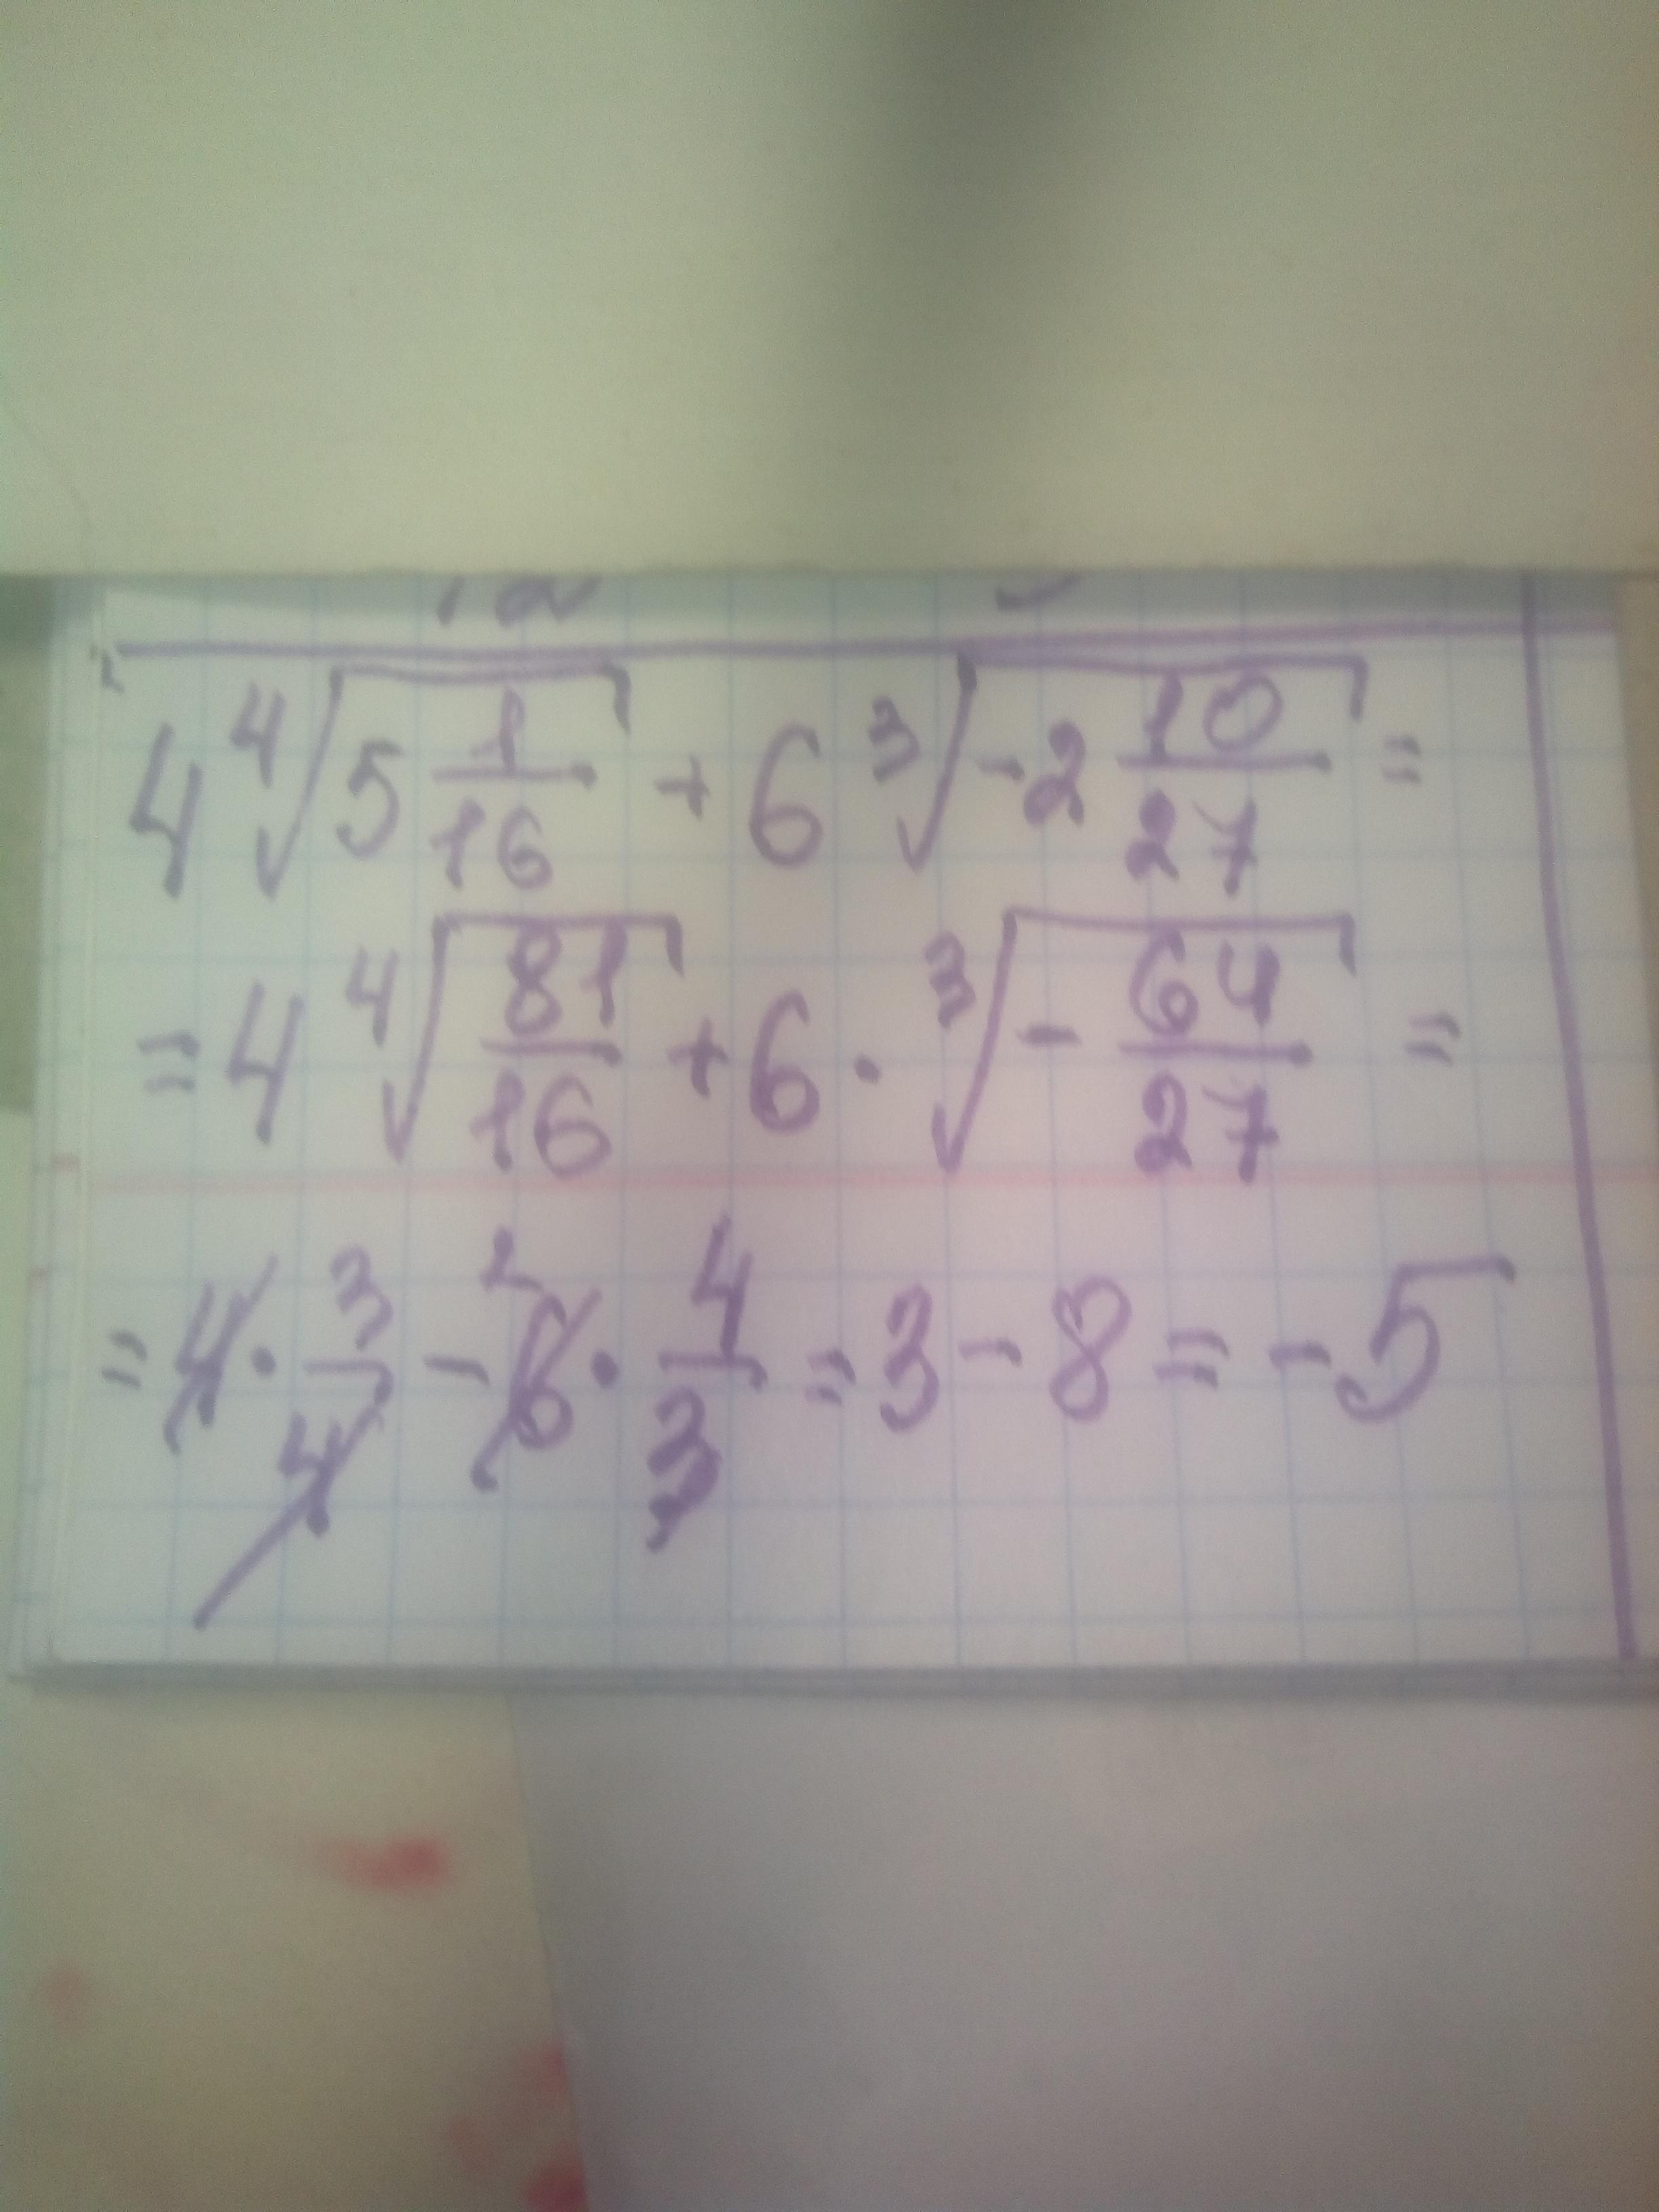 4 ⁴√(5 1/16) + 6 ³√(-2 10/27) =
= 4 ⁴√(81/16) + 6 · ³√(- 64/27) =
= 4 · 3/4 - 6 2 · 4/3 = 3 - 8 = - 5